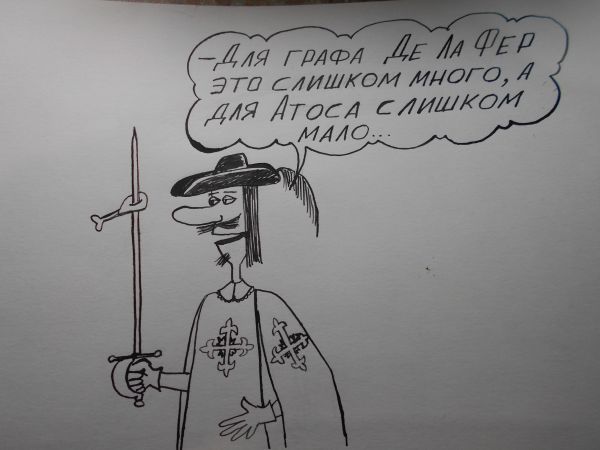 -Для графа Де Ла Фер
это слишком много, а
для Атоса слишком
мало...